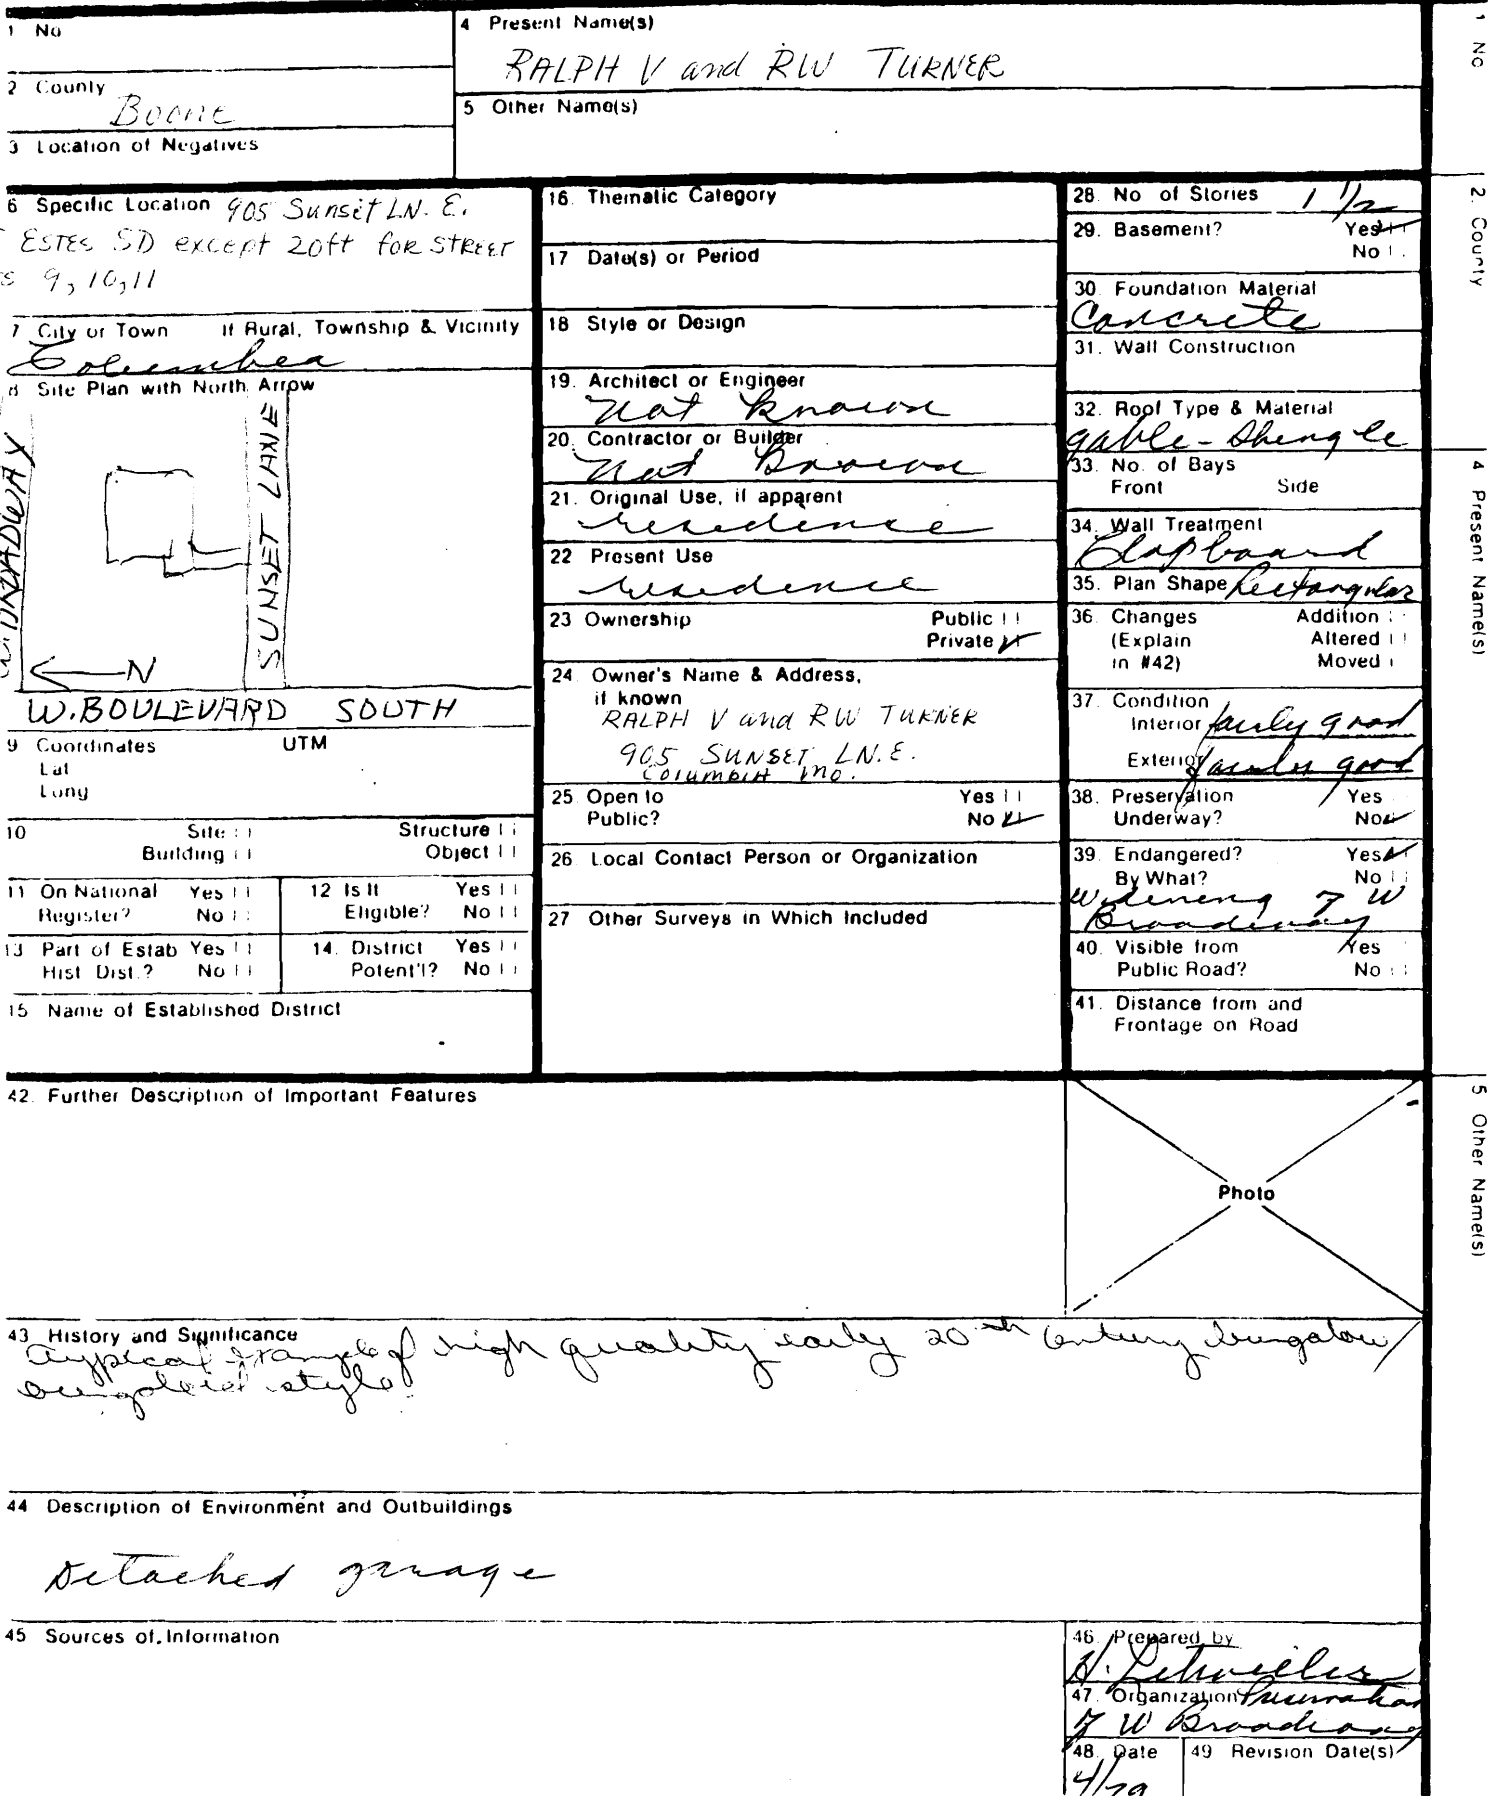 1 No
4 Present Name(s)
RALPH V and RW TURNER
2 County
Boone
5 Other Name(s)
3 Location of Negatives
6 Specific Location 905 Sunset LN. E.
ESTES SD except 20ft for STREET
9, 10, 11
7 City or Town If Rural, Township & Vicinity
Columbia
8 Site Plan with North Arrow
W. BROADWAY
SUNSET LANE
N
W. BOULEVARD SOUTH
9 Coordinates UTM
Lat
Long
10 Site Structure
Building Object
11 On National Register? Yes No
12 Is It Eligible? Yes No
13 Part of Estab Hist Dist.? Yes No
14. District Potent'l? Yes No
15 Name of Established District
16. Thematic Category
17 Date(s) or Period
18 Style or Design
19. Architect or Engineer
not known
20. Contractor or Builder
not known
21. Original Use, if apparent
residence
22 Present Use
residence
23 Ownership Public
Private ✓
24 Owner's Name & Address,
if known
RALPH V and RW TURNER
905 SUNSET LN. E.
Columbia Mo.
25 Open to Yes
Public? No ✓
26 Local Contact Person or Organization
27 Other Surveys in Which Included
28. No of Stories 1 1/2
29. Basement? Yes ✓
No
30 Foundation Material
Concrete
31. Wall Construction
32. Roof Type & Material
gable - Shingle
33. No. of Bays
Front Side
34. Wall Treatment
Clapboard
35. Plan Shape Rectangular
36 Changes Addition
(Explain Altered
in #42) Moved
37. Condition
Interior fairly good
Exterior fairly good
38. Preservation Yes
Underway? No ✓
39. Endangered? Yes ✓
By What? No
Widening of W
Broadway
40. Visible from Yes
Public Road? No
41. Distance from and
Frontage on Road
42. Further Description of Important Features
Photo
43 History and Significance
A typical example of high quality early 20th century bungalow/
bungaloid style.
44 Description of Environment and Outbuildings
Detached garage
45 Sources of Information
46. Prepared by
47. Organization Preservation
of W Broadway
48. Date
4/79
49 Revision Date(s)
1 No
2. County
4 Present Name(s)
5 Other Name(s)